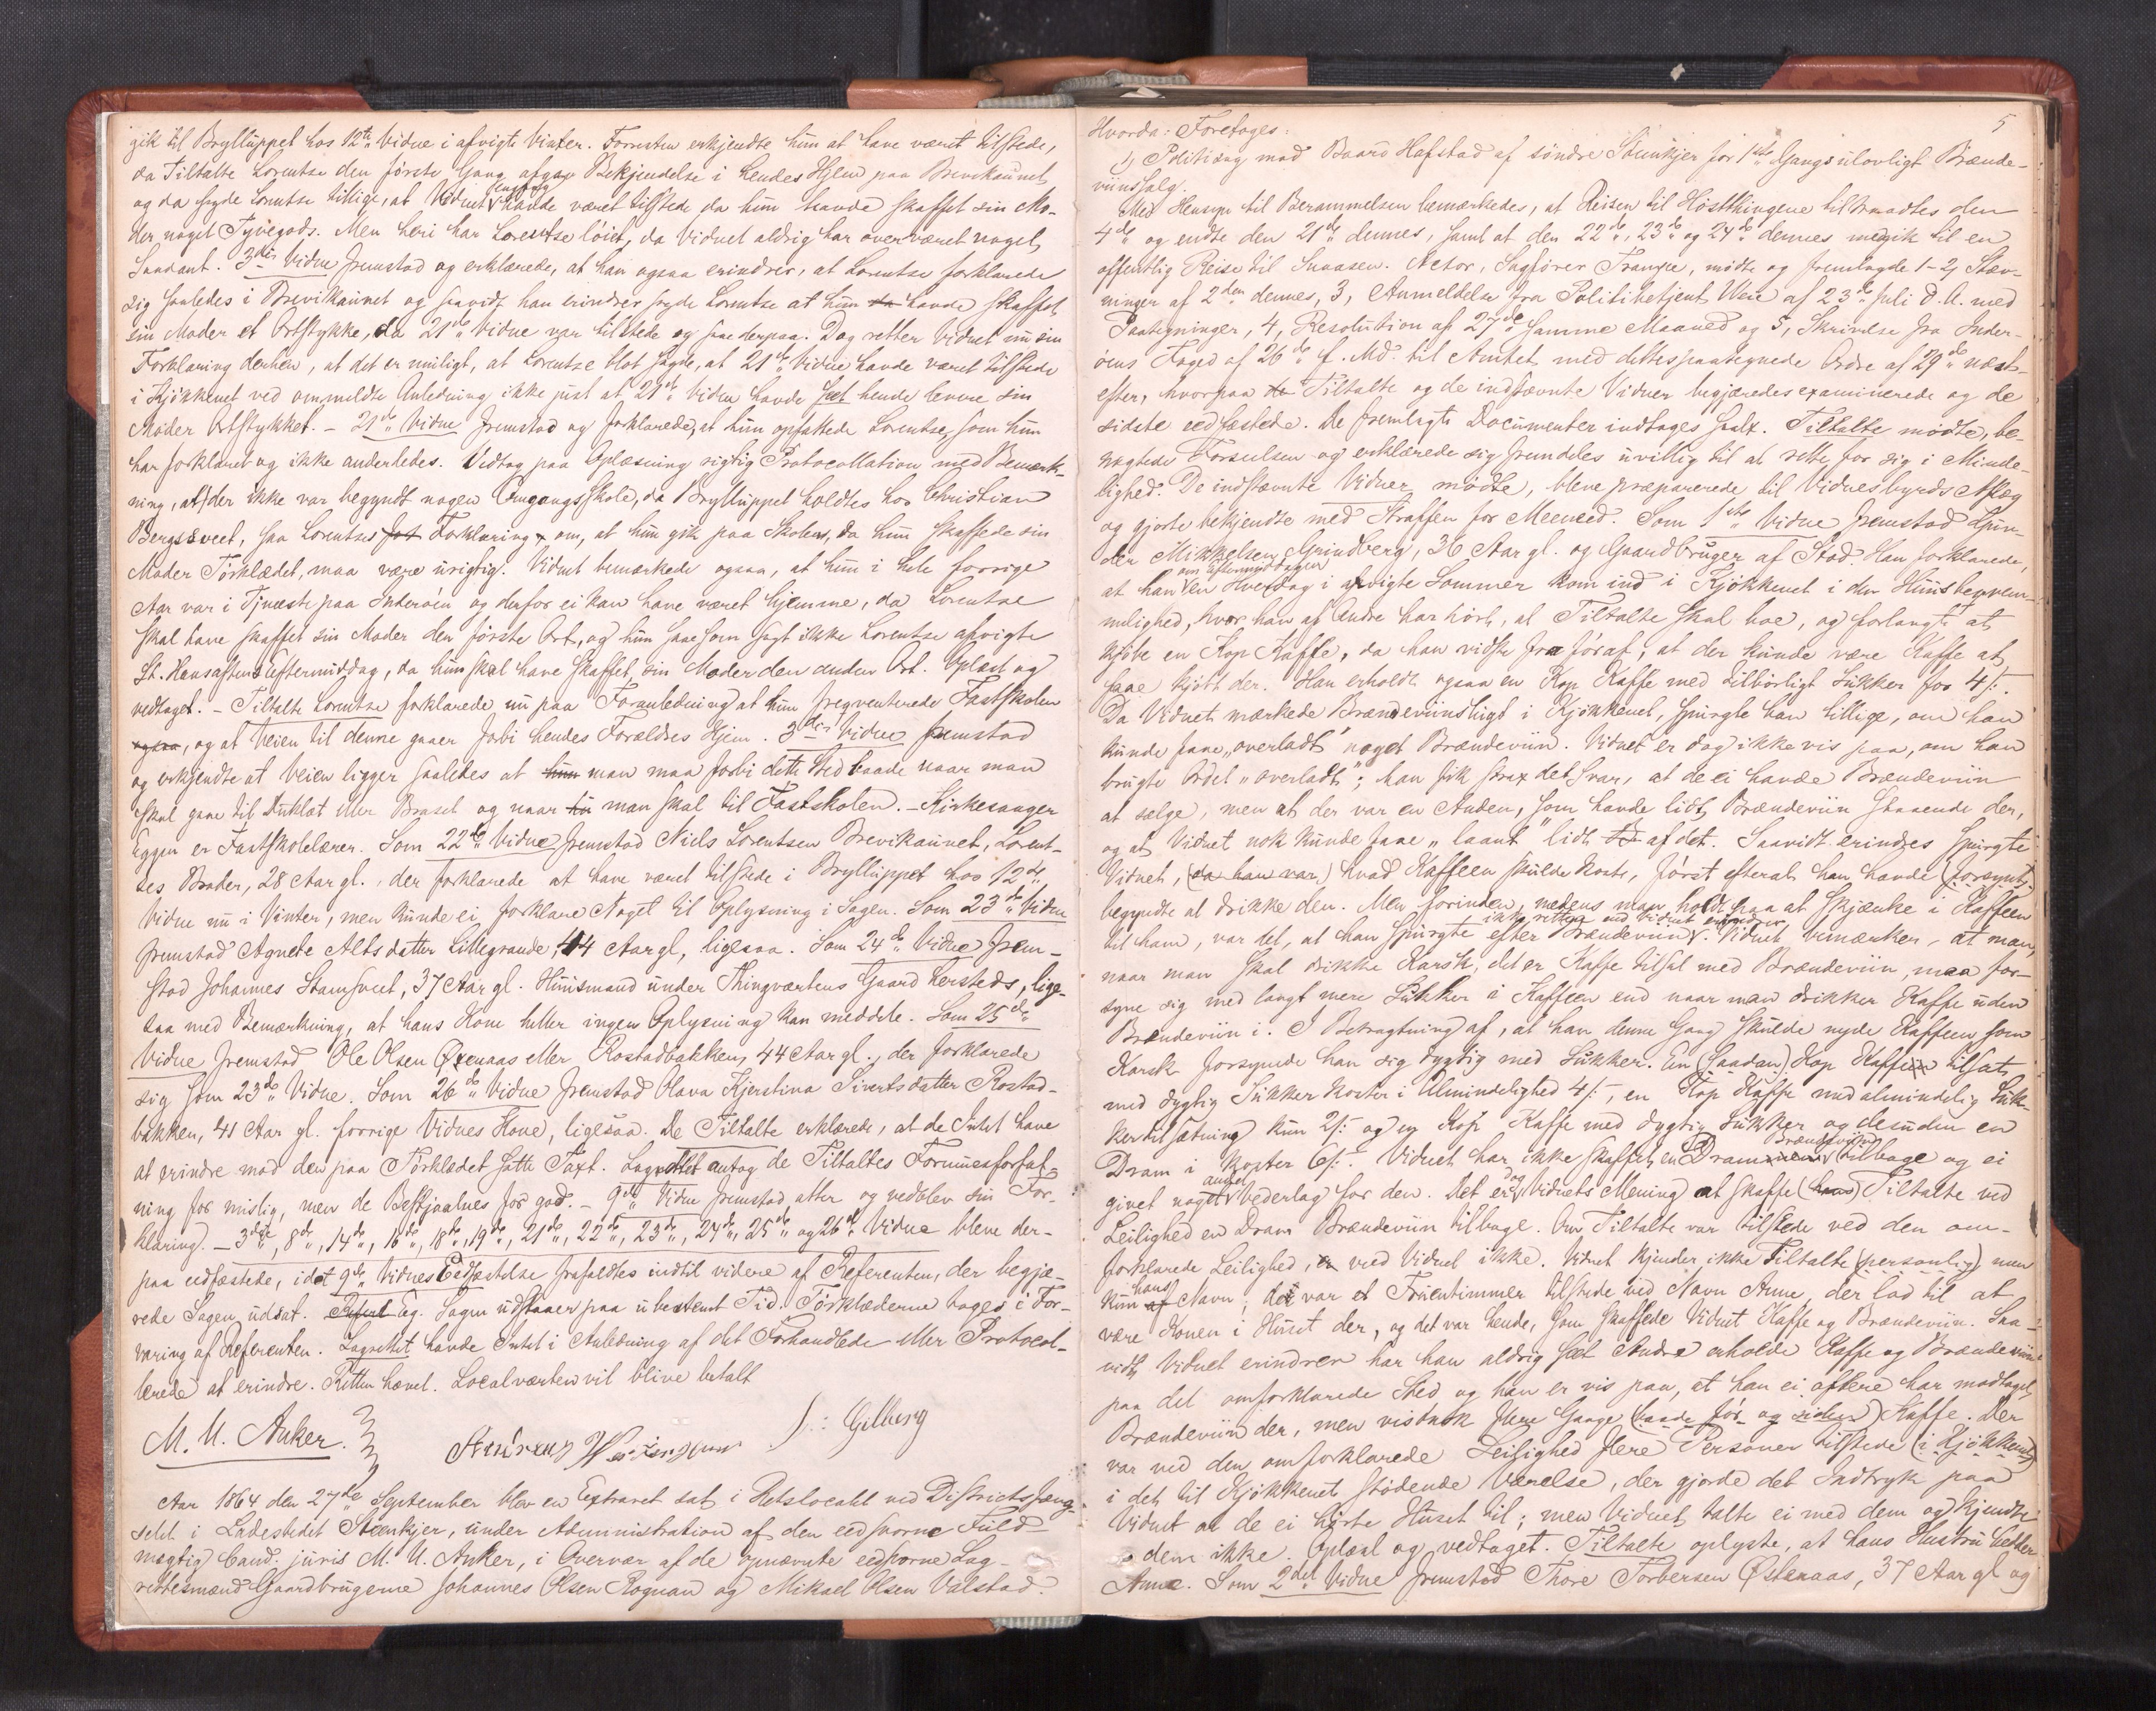 gik til Bryllüppet hos 12te Vidne i afvigte Vinter. Forresten erkjendte hun at have været tilstede,
da Tiltalte Lorentse den første Gang afgav Bekjendelse i hendes Hjem paa Brevikaünet
og da sagde Lorentse tillige, at Vidnet engang havde været tilstede da hün havde skaffet sin Mo-
der noget Tyvegods. Men heri har Lorentse löiet, da Vidnet aldrig har overværet noget
Saadant. 3die Vidne fremstod og erklærede, at han ogsaa erindrer, at Lorentse forklarede
sig saaledes i Brevikaünet og saavidt han erindrer sagde Lorentse at hün da havde skaffet
sin Moder et Ortstykke, da 21de Vidne var tilstede og saae derpaa. Dog retter Vidnet nü sin
Forklaring derhen, at det er müligt, at Lorentse blot sagde, at 21de Vidne havde været tilstede
i Kjökkenet ved ommeldte Anledning, ikke just at 21de Vidne havde seet hende levere sin
Moder Ortstykket. - 21de Vidne fremstod og forklarede, at hün opfattede Lorentse, som hün
har forklaret og ikke anderledes. Vedtog paa Oplæsning rigtig Protocollation med Bemærk-
ning, at der ikke var begyndt nogen Omgangsskole, da Bryllüppet holdtes hos Christian
Bergsveet, saa Lorentses Forklaring om, at hün gik paa Skolen, da hün skaffede sin
Moder Törklædet, maa være ürigtig. Vidnet bemærkede ogsaa, at hün i hele forrige
Aar var i Tjeneste paa Inderöen og derfor ei kan have været hjemme, da Lorentse
skal have skaffet sin Moder den første Ort, og hün saae som sagt ikke Lorentse afvigte
St. Hansaftens Eftermiddag, da hün skal have skaffet sin Moder den anden Ort. Oplæst og
vedtaget. - Tiltalte Lorentse forklarede nü paa Foranledning at hün freqventerede Fastskolen
ogsaa, og at Veien til denne gaaer forbi hendes Forældres Hjem. 3die Vidne fremstod
og erkjendte at Veien ligger saaledes at hün man maa forbi dette Sted baade naar man
skal gaae til Düklæt eller Braset og naar man skal til Fastskolen. - Kirkesanger
Eggen er Fastskolelærer. Som 22de Vidne fremstod Niels Lorentsen Brevikaünet, Lorent-
ses Broder, 28 Aar gl., der forklarede at have været tilstede i Bryllüppet hos 12te
Vidne nü i Vinter, men künde ei forklare Noget til Oplysning i Sagen. Som 23de Vidne
fremstod Agnete Altsdatter Lillegrande, 44 Aar gl, ligesaa. Som 24de Vidne frem-
stod Johannes Stamsveet, 37 Aar gl. Hüüsmand ünder Thingværtens Gaard hersteds, lige-
saa med Bemærkning, at hans Kone heller ingen Oplysning kan meddele. Som 25de
Vidne fremstod Ole Olsen Øxenaas eller Rostadbakken, 44 Aar gl., der forklarede
sig som 23de Vidne. Som 26de Vidne fremstod Olava Kjerstina Sivertsdatter Rostad-
bakken, 41 Aar gl. forrige Vidnes Kone, ligesaa. De Tiltalte erklærede, at de Intet have
at erindre mod den paa Törklædet satte Taxt. Lagrettet antog de Tiltaltes Formuesforfat-
ning for mislig, men de Bestjaalnes for god. - 9de Vidne fremstod atter og vedblev sin For-
klaring. - 3die, 8de, 14de, 16de, 18de, 19de, 21de, 22de, 23de, 24de, 25de og 26de Vidne bleve der-
paa eedfæstede, idet 9de Vidnes Eedfæstelse frafaldtes indtil videre af Referenten, der begjæ-
rede Sagen udsat. Eg. Sagen üdstaaer paa übestemt Tid. Törklæderne toges i For-
varing af Referenten. Lagrettet havde Intet i Anledning af det Forhandlede eller Protocol-
lerede at erindre. Retten hævet. Localværten vil blive betalt
M. U. Anker. Gilberg
Aar 1864 den 27de September blev en Extraret sat i Retslocalet ved Districtsfæng-
selet i Ladestedet Steenkjer, ünder Administration af den eedsvorne Füld-
mægtig Cand. jüris M. U. Anker, i Overvær af de opnævnte eedsvorne Lag-
rettesmænd Gaardbrügerne Johannes Olsen Rognan og Mikael Olsen Valstad.
5
Hvorda: Foretoges:
1) Politisag mod Baard Hafstad af söndre Stenkjer for 1ste Gangs ülovligt Brænde-
viinssalg.
Med Hensyn til Berammelsen bemærkedes, at Reisen til Höstthingene tiltraadtes den
4de og endte den 21de dennes, samt at den 22de, 23de og 24de dennes medgik til en
offentlig Reise til Snaasen. Actor, Sagfører Trampe, mödte og fremlagde 1-2, Stæv-
ninger af 2den dennes, 3, Anmeldelse fra Politibetjent Were af 23de Juli d. A. med
Paategninger, 4, Resolution af 27de samme Maaned og 5, Skrivelse fra Inder-
öens Foged af 26de f. Md. til Amtet, med dettes paategnede Ordre af 29de næst-
efter, hvorpaa Tiltalte og de indstævnte Vidner begjæredes examinerede og de
sidste eedfæstede. De fremlagte Documenter indtages saal. Tiltalte mödte, be-
nægtede Forseelsen og erklærede sig fremdeles üvillig til at rette for sig i Minde-
lighed. De indstævnte Vidner mödte, bleve præparerede til Vidnesbyrds Aflæg
og gjorte bekjendte med Straffen for Meeneed. Som 1ste Vidne fremstod Gun-
der Mikkelsen Grindberg, 36 Aar gl. og Gaardbrüger af Stod. Han forklarede,
at han om Eftermiddagen en Hverdag i afvigte Sommer kom ind i Kjökkenet i den Hüüsbeqvem-
melighed, hvor han af Andre har hört, at Tiltalte skal boe, og forlangte at
kjöbe en Kop Kaffe, da han vidste fra föraf, at der künde være Kaffe at
faae kjöbt der. Han erholdt ogsaa en Kop Kaffe med tilbörligt Sükker for 4 s.
Da Vidnet mærkede Brændeviinslügt i Kjökkenet, spürgte han tillige, om han
künde faae „overladt" noget Brændeviin. Vidnet er dog ikke vis paa, om han
brugte Ordet „overladt"; han fik strax det Svar, at de ei havde Brændeviin
at sælge, men at der var en Anden, som havde lidt Brændeviin staaende der,
og at Vidnet nok künde faae „laant" lidt af det. Saavidt erindres spürgte
Vidnet, (da han var) hvad Kaffeen skülde koste, först efterat han havde (forsynt)
begyndte at drikke den. Men forinden, medens man holdt paa at skjænke i Kaffeen
til ham, var det, at han spürgte efter Brændeviin ikke rettere end Vidnet erindrer. Vidnet bemærker, at man,
naar man skal drikke Karsk, det er Kaffe tilsat med Brændeviin, maa for-
syne sig med langt mere Sükker i Kaffeen end naar man drikker Kaffe üden
Brændeviin i. I Betragtning af, at han denne Gang skülde nyde Kaffeen som
Karsk forsynede han sig dygtig med Sükker. En (saadan) Kop Kaffe tilsat
med dygtig Sükker koster i Almindelighed 4 s, en Kop Kaffe med almindelig Sük-
kertilsætning kün 2 s og en Kop Kaffe med dygtig Sükker og desüden en
Dram i koster 6 s. Vidnet har ikke skaffet en Dram Brændeviin tilbage og ei
givet noget andet Vederlag for den. Det er dog Vidnets Mening at skaffe (ham) Tiltalte ved
Leilighed en Dram Brændeviin tilbage. Om Tiltalte var tilstede ved den om-
forklarede Leilighed, veed Vidnet ikke. Vidnet kjender ikke Tiltalte (personlig) men
kün hans Navn; der var et Früentimmer tilstede ved Navn Anne, der lod til at
være Konen i Hüset der, og det var hende, som skaffede Vidnet Kaffe og Brændeviin. Saa-
vidt Vidnet erindrer har han aldrig seet Andre erholde Kaffe og Brændeviin
paa det omforklarede Sted og han er vis paa, at han ei oftere har modtaget
Brændeviin der, men vistnok flere Gange (baade för og siden) Kaffe. Der
var ved den omforklarede Leilighed flere Personer tilstede (i Kjökkenet)
i det til Kjökkenet stödende Værelse, der gjorde det Indtryk paa
Vidnet at de ei hörte Hüset til; men Vidnet talte ei med dem og kjendte
dem ikke. Oplæst og vedtaget. Tiltalte oplyste, at hans Hustrü hedder
Anne. Som 2det Vidne fremstod Thore Torbersen Østenaas, 37 Aar gl og